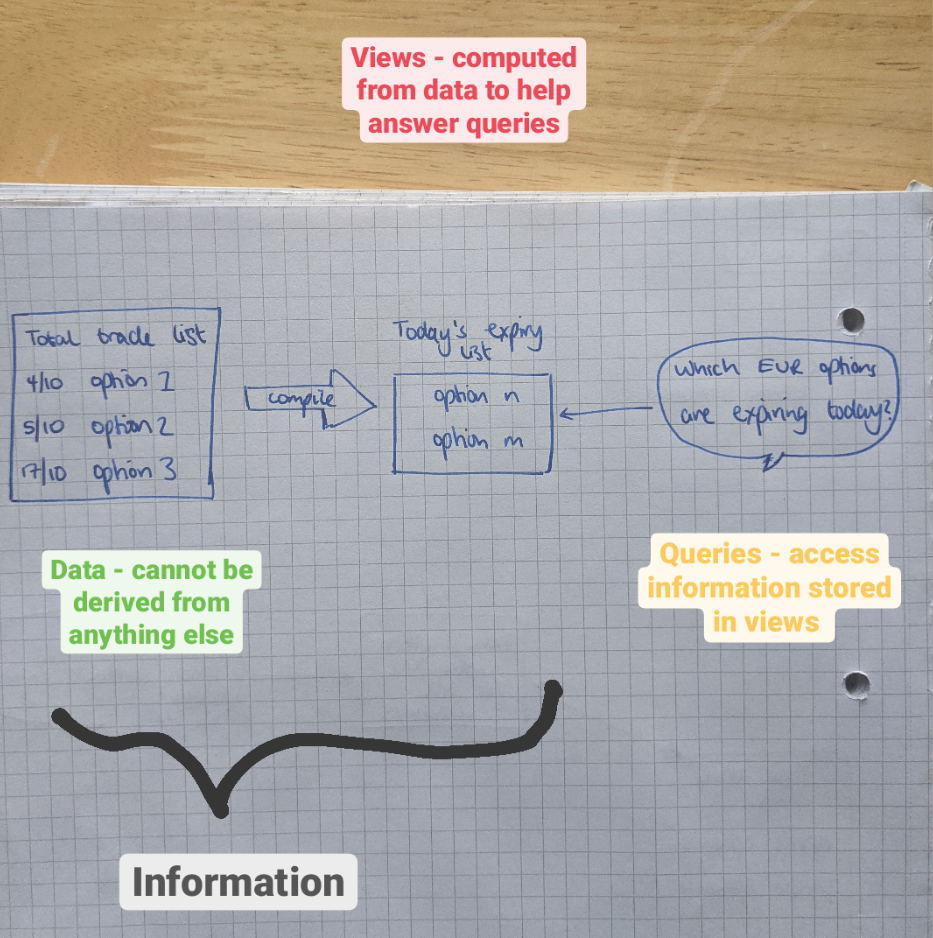 Views - computed
from data to help
answer queries
Total trade list
4/10 option 1
5/10 option 2
17/10 option 3
compile
Today's expiry
list
option n
option m
Which EUR options
are expiring today?
Data - cannot be
derived from
anything else
Queries - access
information stored
in views
Information